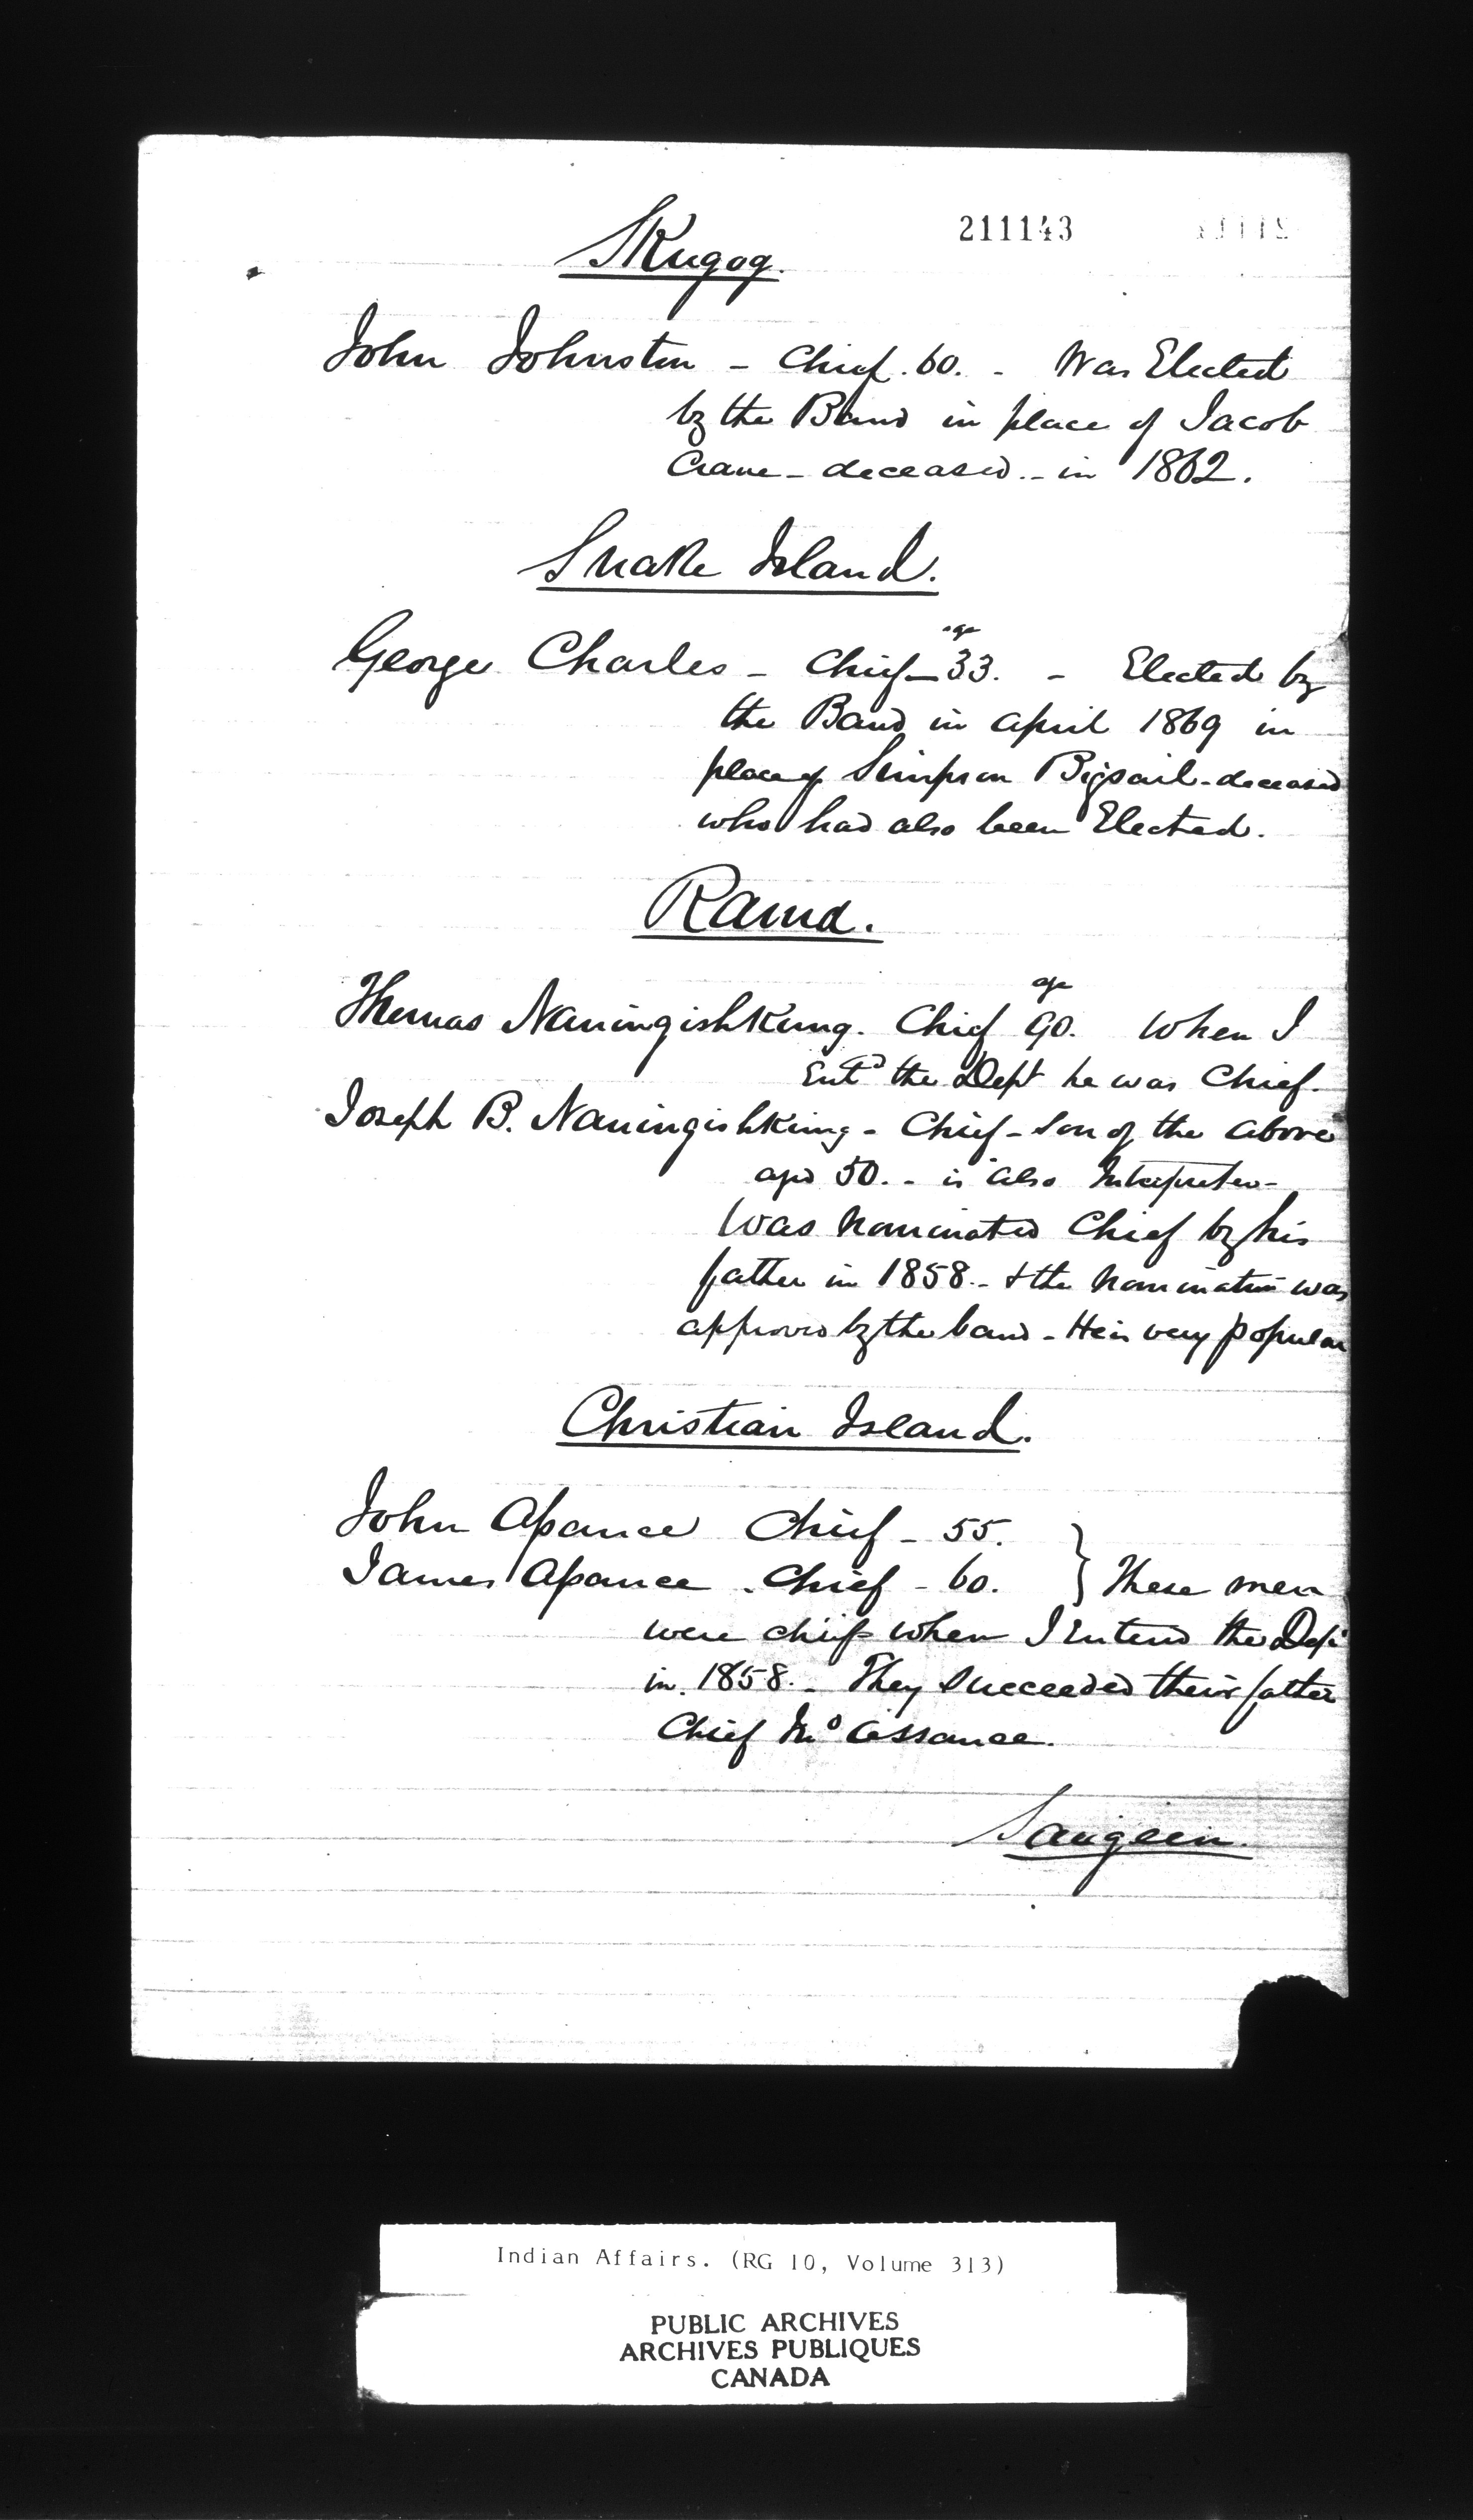 211143
Skugog.
John Johnston - Chief. 60. - Was Elected
by the Band in place of Jacob
Crane - deceased - in 1862.
Snake Island.
age
George Charles - Chief - 33. - Elected by
the Band in April 1869 in
place of Simpson Bigsail - deceased
who had also been Elected.
Rama.
age
Thomas Naningishkung. Chief 90. When I
Entd the Dept he was Chief.
Joseph B. Naningishkung - Chief - Son of the above
aged 50. - is also Interpreter -
Was nominated Chief by his
father in 1858 - & the nomination was
approved by the band - He is very popular
Christian Island.
John Asance Chief - 55.
James Asance. Chief - 60. } These men
were chiefs when I Entered the Dept
in 1858. - They succeeded their father
Chief Jno Assance.
Saugeen.
Indian Affairs. (RG 10, Volume 313)
PUBLIC ARCHIVES
ARCHIVES PUBLIQUES
CANADA